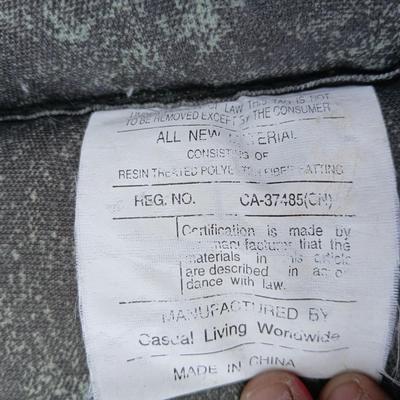 LAW THIS TAG IS NOT
TO BE REMOVED EXCEPT BY THE CONSUMER
ALL NEW MATERIAL
CONSISTING OF
RESIN TREATED POLYESTER FIBER BATTING
REG. NO. CA-37485(CN)
Certification is made by
manufacturer that the
materials in this article
are described in
dance with law.
MANUFACTURED BY
Casual Living Worldwide
MADE IN CHINA